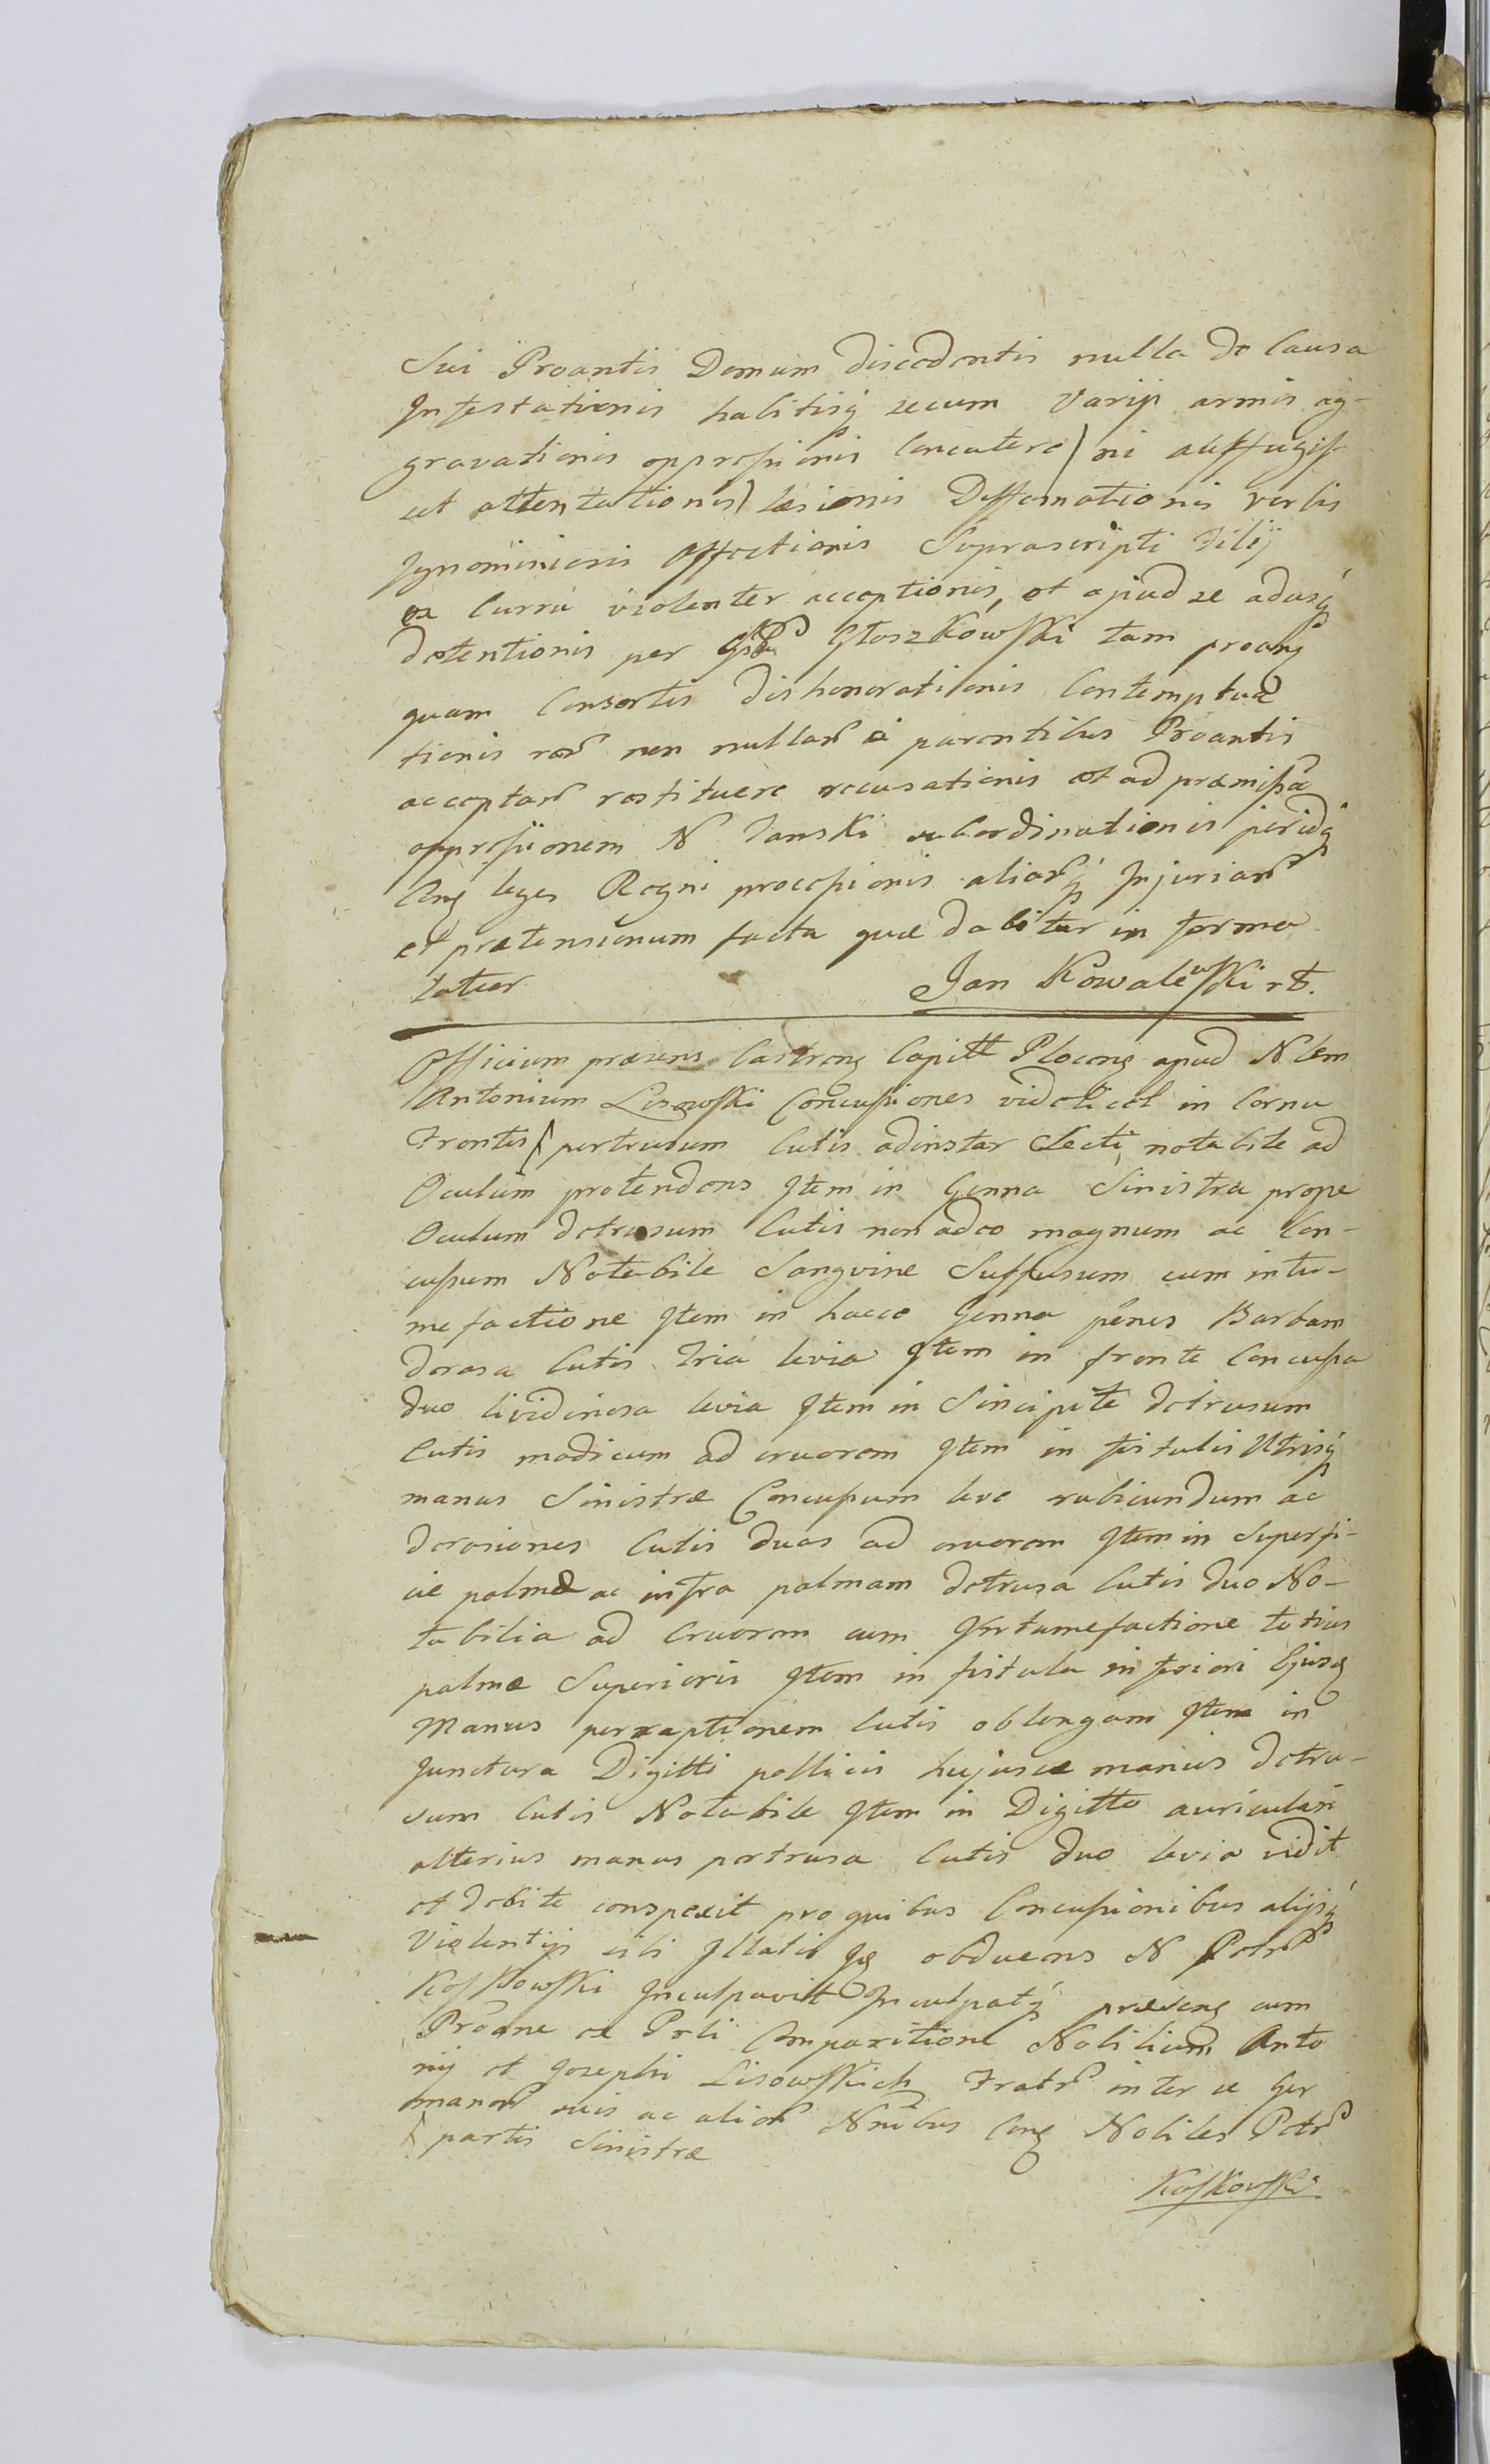 Sui Proantis Domum discedentis nulla de Causa
Infestationis habitisq secum Varijs armis ag-
gravationis oppressionis Concutere) ni auffugiss
set attentationis) læsionis Deffamationis verbis
Ignominiosis Affectionis Suprascripti Filij
ex Curru violenter acceptionis, et apud se adusq
detentionis per Głoszkowski tam proang
quam Consortis dishonorationis Contemptua
tionis rer non nullar a parentibus Proantis
acceptar restituere recusationis et ad præmissa
oppressionem N Janski subordinationis periδq
Cong leges Regni processionis aliarq Injuriar
et prætensionum facta quæ dabitur in forma
latior Jan Kowalewski rt.
Officium præsens Castreng Capitt Ploceng apud Nlem
Antonium Lisowski Concussiones videlicet in Cornu
Frontis pertrusum Cutis adinstar Secti notabile ad
Oculum protendens Item in Genna Sinistra prope
Oculum detrusum Cutis non adeo magnum ac Con-
cussum Notabile Sangvine Suffusum cum intu-
mefactione Item in hacce Genna penes Barbam
derasa Cutis tria levia Item in fronte Concussa
duo lividinosa levia Item in Sincipite detrusum
Cutis modicum ad cruorem Item in fistulis Utrisq
manus Sinistræ Concussum leve rubicundum ac
derasiones Cutis duas ad cruorem Item in Superfi-
cie palmæ ac infra palmam detrusa Cutis duo No-
tabilia ad Cruorem cum Intumefactione totius
palmæ Superioris Item in fistula inferiori Ejusd
Manus perraptionem Cutis oblongam Item in
Junctura Digitti pollicis hujusce manus detru-
sum Cutis Notabile Item in Digitto auriculari
alterius manus pertrusa Cutis duo levia vidit
et debite conspexit pro quibus Concussionibus alijsq
Violentijs sibi Illatis Is obducens N Petr
Koskowski Inculpavit Inculpatq præseng cum
Proane ex Prli Comparitione Nobilium Anto
nij et Josephi Lisowskich Fratr inter se Ger
manor suis ac alior Nnibus Cong Nobiles Petr
partis Sinistræ
Koskowski